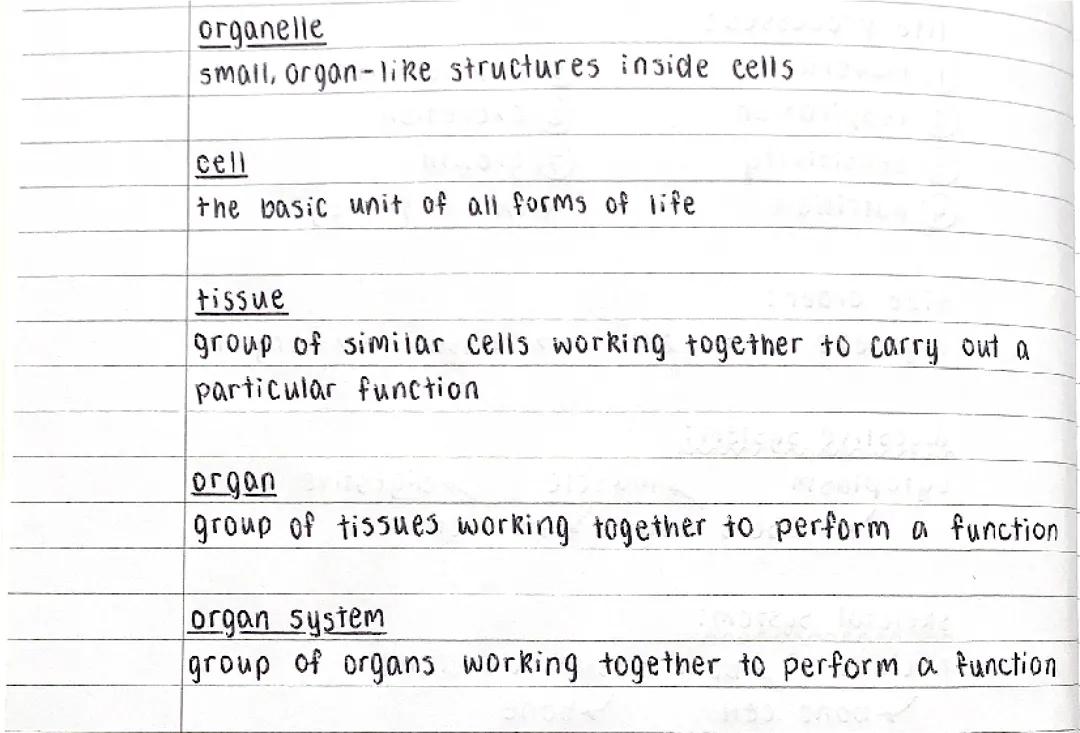 organelle
small, organ-like structures inside cells
cell
the basic unit of all forms of life
tissue
group of similar cells working together to carry out a
particular function
organ
group of tissues working together to perform a function
organ system
group of organs working together to perform a function